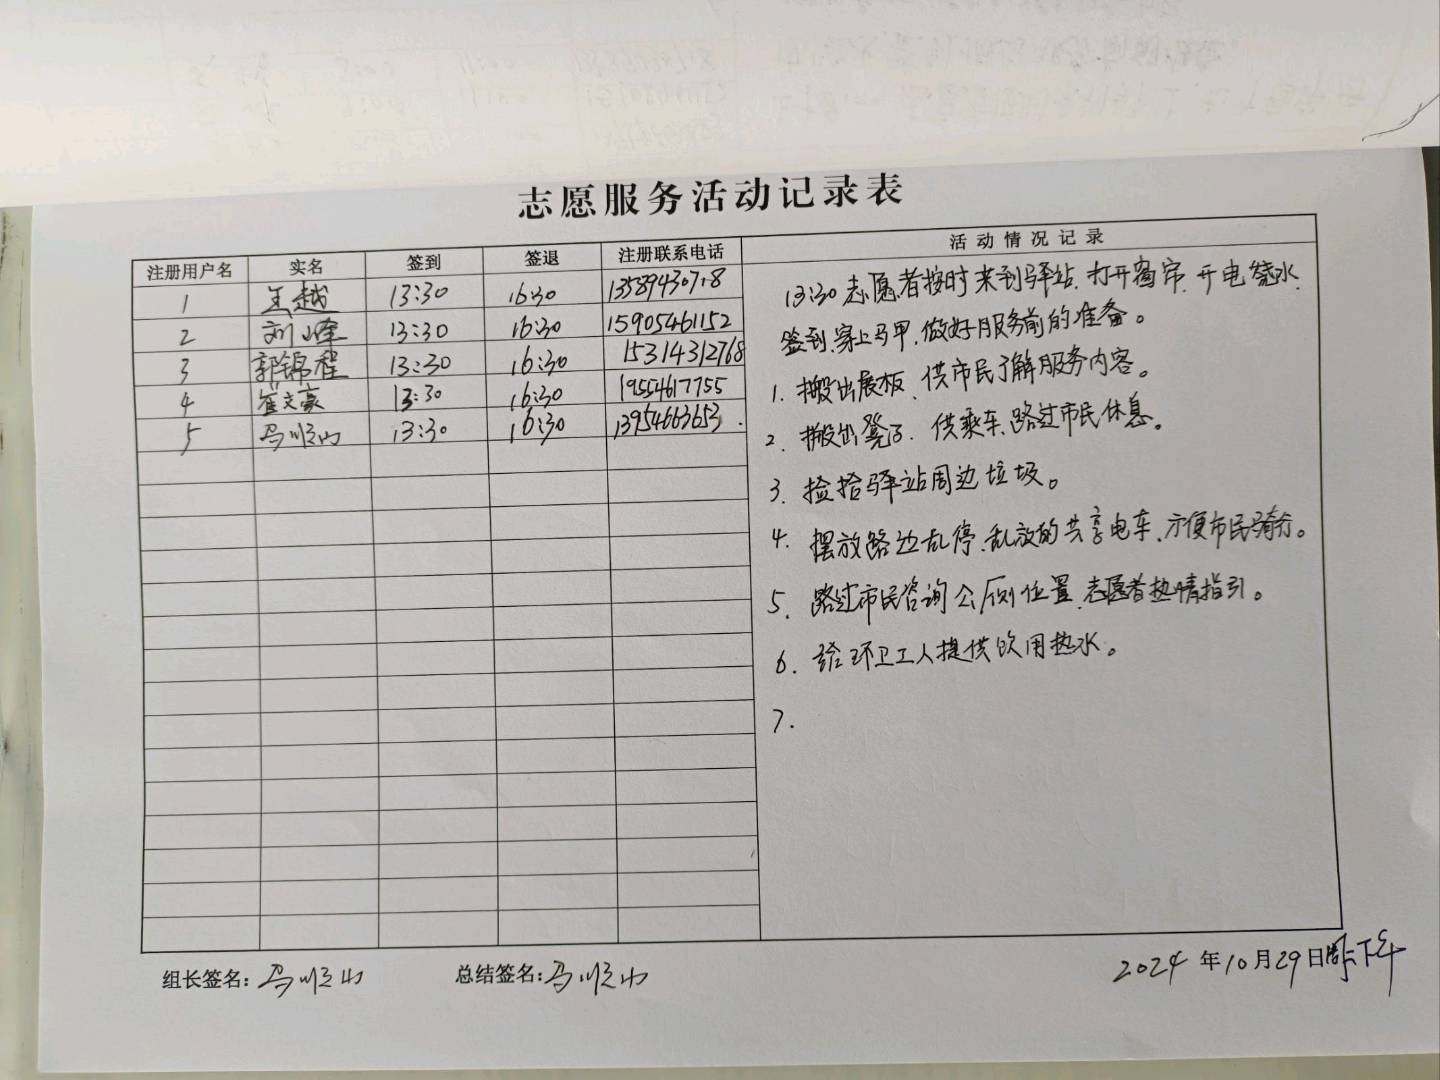 志愿服务活动记录表
注册用户名 实名 签到 签退 注册联系电话 活动情况记录
1 王越 13:30 16:30
2 刘峰 13:30 16:30 15905461152
3 郭锦程 13:30 16:30 15314312768
4 崔文豪 13:30 16:30 19554617755
5 马顺山 13:30 16:30 13954663653
13:30志愿者按时来到驿站、打开窗帘、开电烧水、
签到、穿上马甲、做好服务前的准备。
1. 搬出展板、供市民了解服务内容。
2. 搬出凳子、供乘车、路过市民休息。
3. 捡拾驿站周边垃圾。
4. 摆放路边乱停、乱放的共享电车、方便市民骑行。
5. 路过市民咨询公厕位置、志愿者热情指引。
6. 给环卫工人提供饮用热水。
7.
组长签名：马顺山 总结签名：马顺山 2024年10月29日周二下午